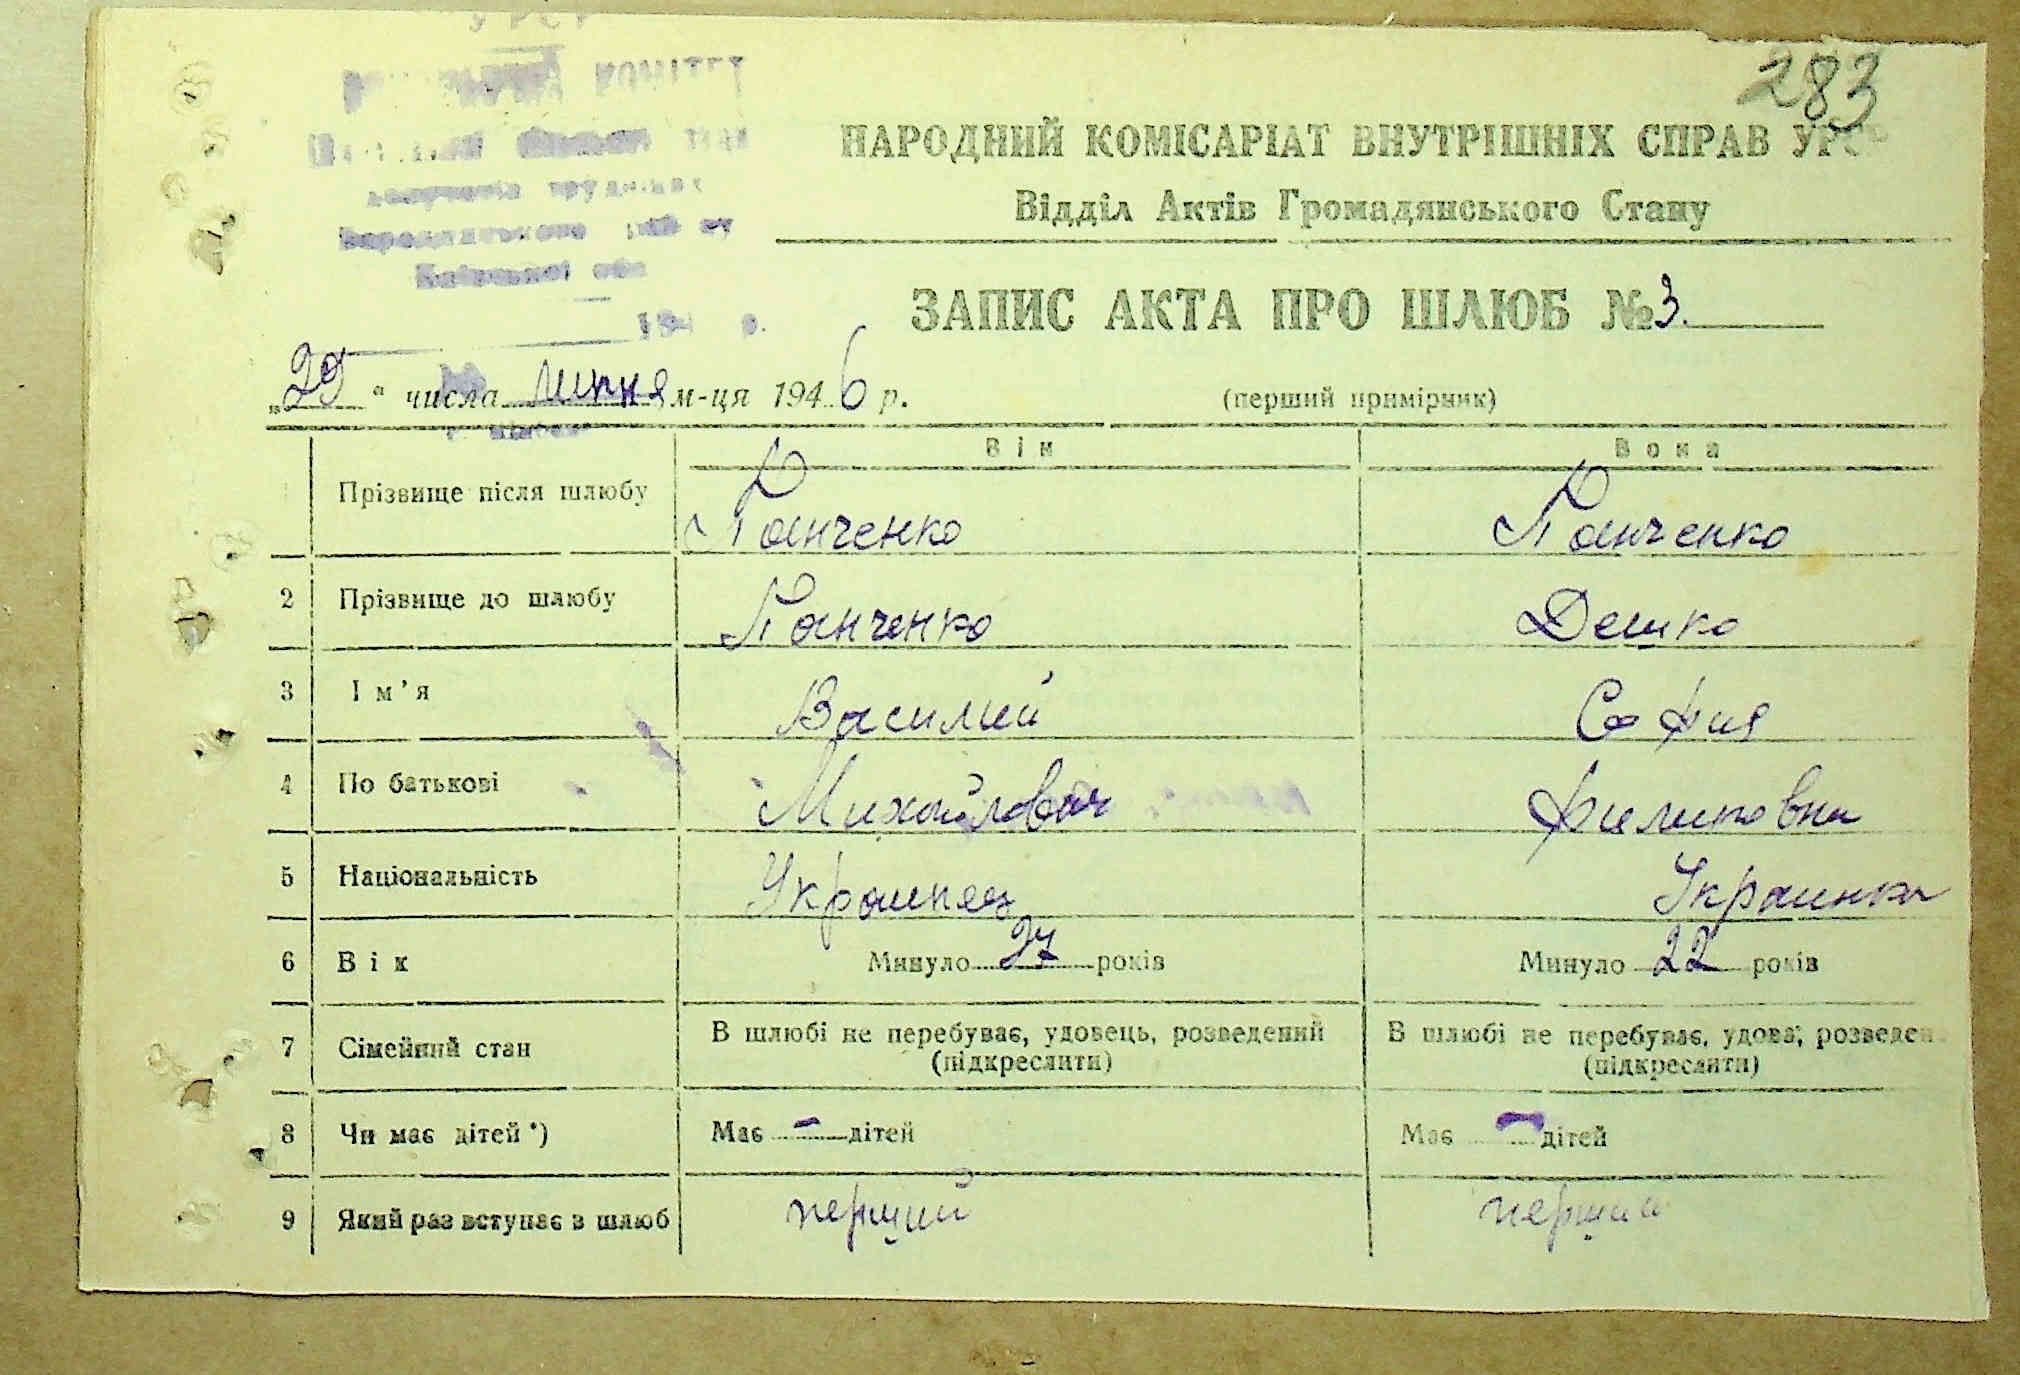 УРСР
КОМІТЕТ
депутатів трудящих
Бородянського р-ну
Київської обл
194 р.
283
НАРОДНИЙ КОМІСАРІАТ ВНУТРІШНІХ СПРАВ УРСР
Відділ Актів Громадянського Стану
ЗАПИС АКТА ПРО ШЛЮБ № 3.
„29“ числа липня м-ця 1946 р.
(перший примірник)
Він Вона
Прізвище після шлюбу Панченко Панченко
2 Прізвище до шлюбу Панченко Дешко
3 Ім’я Василий София
4 По батькові Михайлович Филиповна
5 Національність Украинец Украинка
6 Вік Минуло 27 років Минуло 22 років
7 Сімейний стан В шлюбі не перебуває, удовець, розведений В шлюбі не перебуває, удова, розведен
(підкреслити) (підкреслити)
8 Чи має дітей*) Має - дітей Має - дітей
9 Який раз вступає в шлюб перший перший